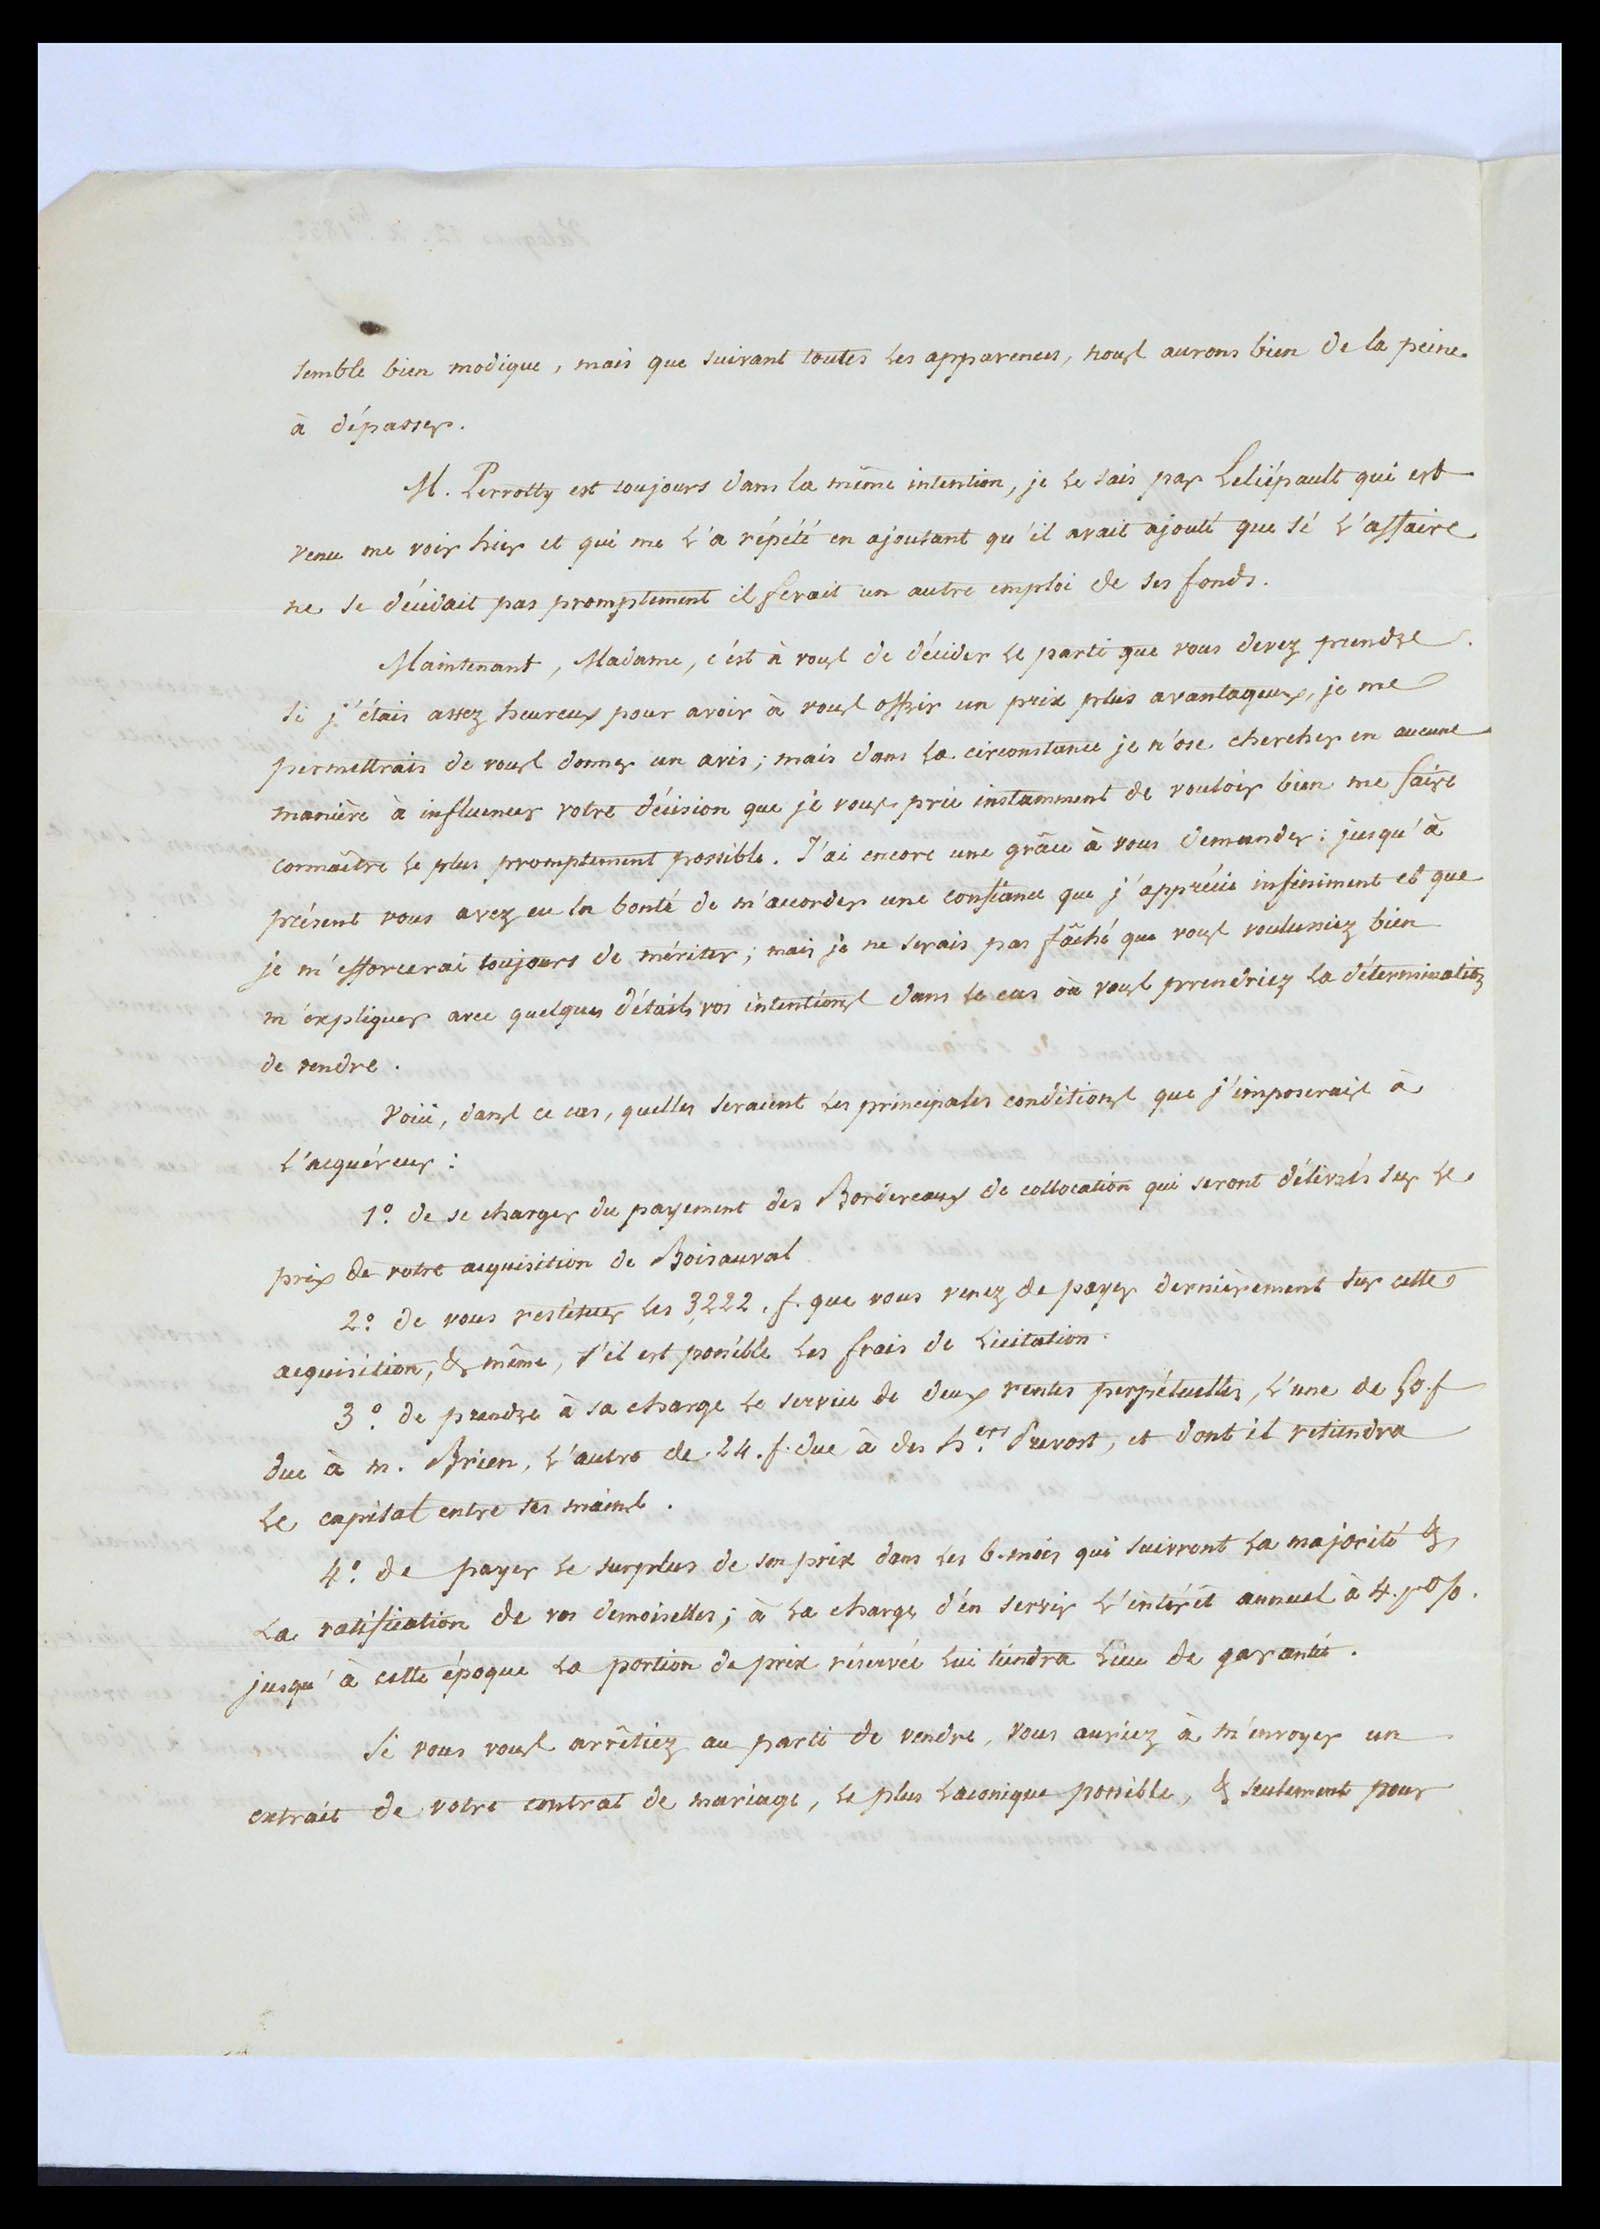 semble bien modique, mais que suivant toutes les apparences, nous aurons bien de la peine
à dépasser.
M. Perrotty est toujours dans la même intention, je le sais par Leliépault qui est
venu me voir hier et qui me l'a répété en ajoutant qu'il avait ajouté que si l'affaire
ne se décidait pas promptement il ferait un autre emploi de ses fonds.
Maintenant, Madame, c'est à vous de décider le parti que vous devez prendre.
Si j'étais assez heureux pour avoir à vous offrir un prix plus avantageux, je me
permettrais de vous donner un avis; mais dans la circonstance je n'ose chercher en aucune
manière à influencer votre décision que je vous prie instamment de vouloir bien me faire
connaître le plus promptement possible. J'ai encore une grâce à vous demander: jusqu'à
présent vous avez eu la bonté de m'accorder une confiance que j'apprécie infiniment et que
je m'efforcerai toujours de mériter; mais je ne serais pas fâché que vous voulussiez bien
m'expliquer avec quelques détails vos intentions dans le cas où vous prendriez la détermination
de vendre.
Voici, dans ce cas, quelles seraient les principales conditions que j'imposerais à
l'acquéreur:
1º. de se charger du payement des Bordereaux de collocation qui seront délivrés sur le
prix de votre acquisition de Boisauval
2º. de vous restituer les 3,222. f. que vous venez de payer dernièrement sur cette
acquisition, & même, s'il est possible les frais de licitation.
3º. de prendre à sa charge le service de deux rentes perpétuelles, l'une de 50. f
due à m. Brien, l'autre de 24. f. due à des h.ers Prevost, et dont il retiendra
le capital entre ses mains.
4º. de payer le surplus de son prix dans les 6. mois qui suivront la majorité &
la ratification de vos demoiselles; à la charge d'en servir l'intérêt annuel à 4. p%.
jusqu'à cette époque la portion de prix réservée lui tiendra lieu de garantie.
Si vous vous arrêtiez au parti de vendre, vous auriez à m'envoyer un
extrait de votre contrat de mariage, le plus laconique possible, & seulement pour